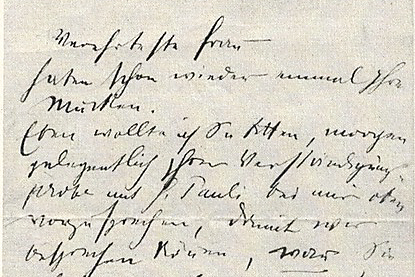 Verehrteste Frau
haben schon wieder einmal Ihre
Mucken.
Eben wollte ich Sie bitten, morgen
gelegentlich Ihrer Verständigungs-
probe mit P. Pauli bei mir oben
vorzusprechen, damit wir
besprechen können, was Sie